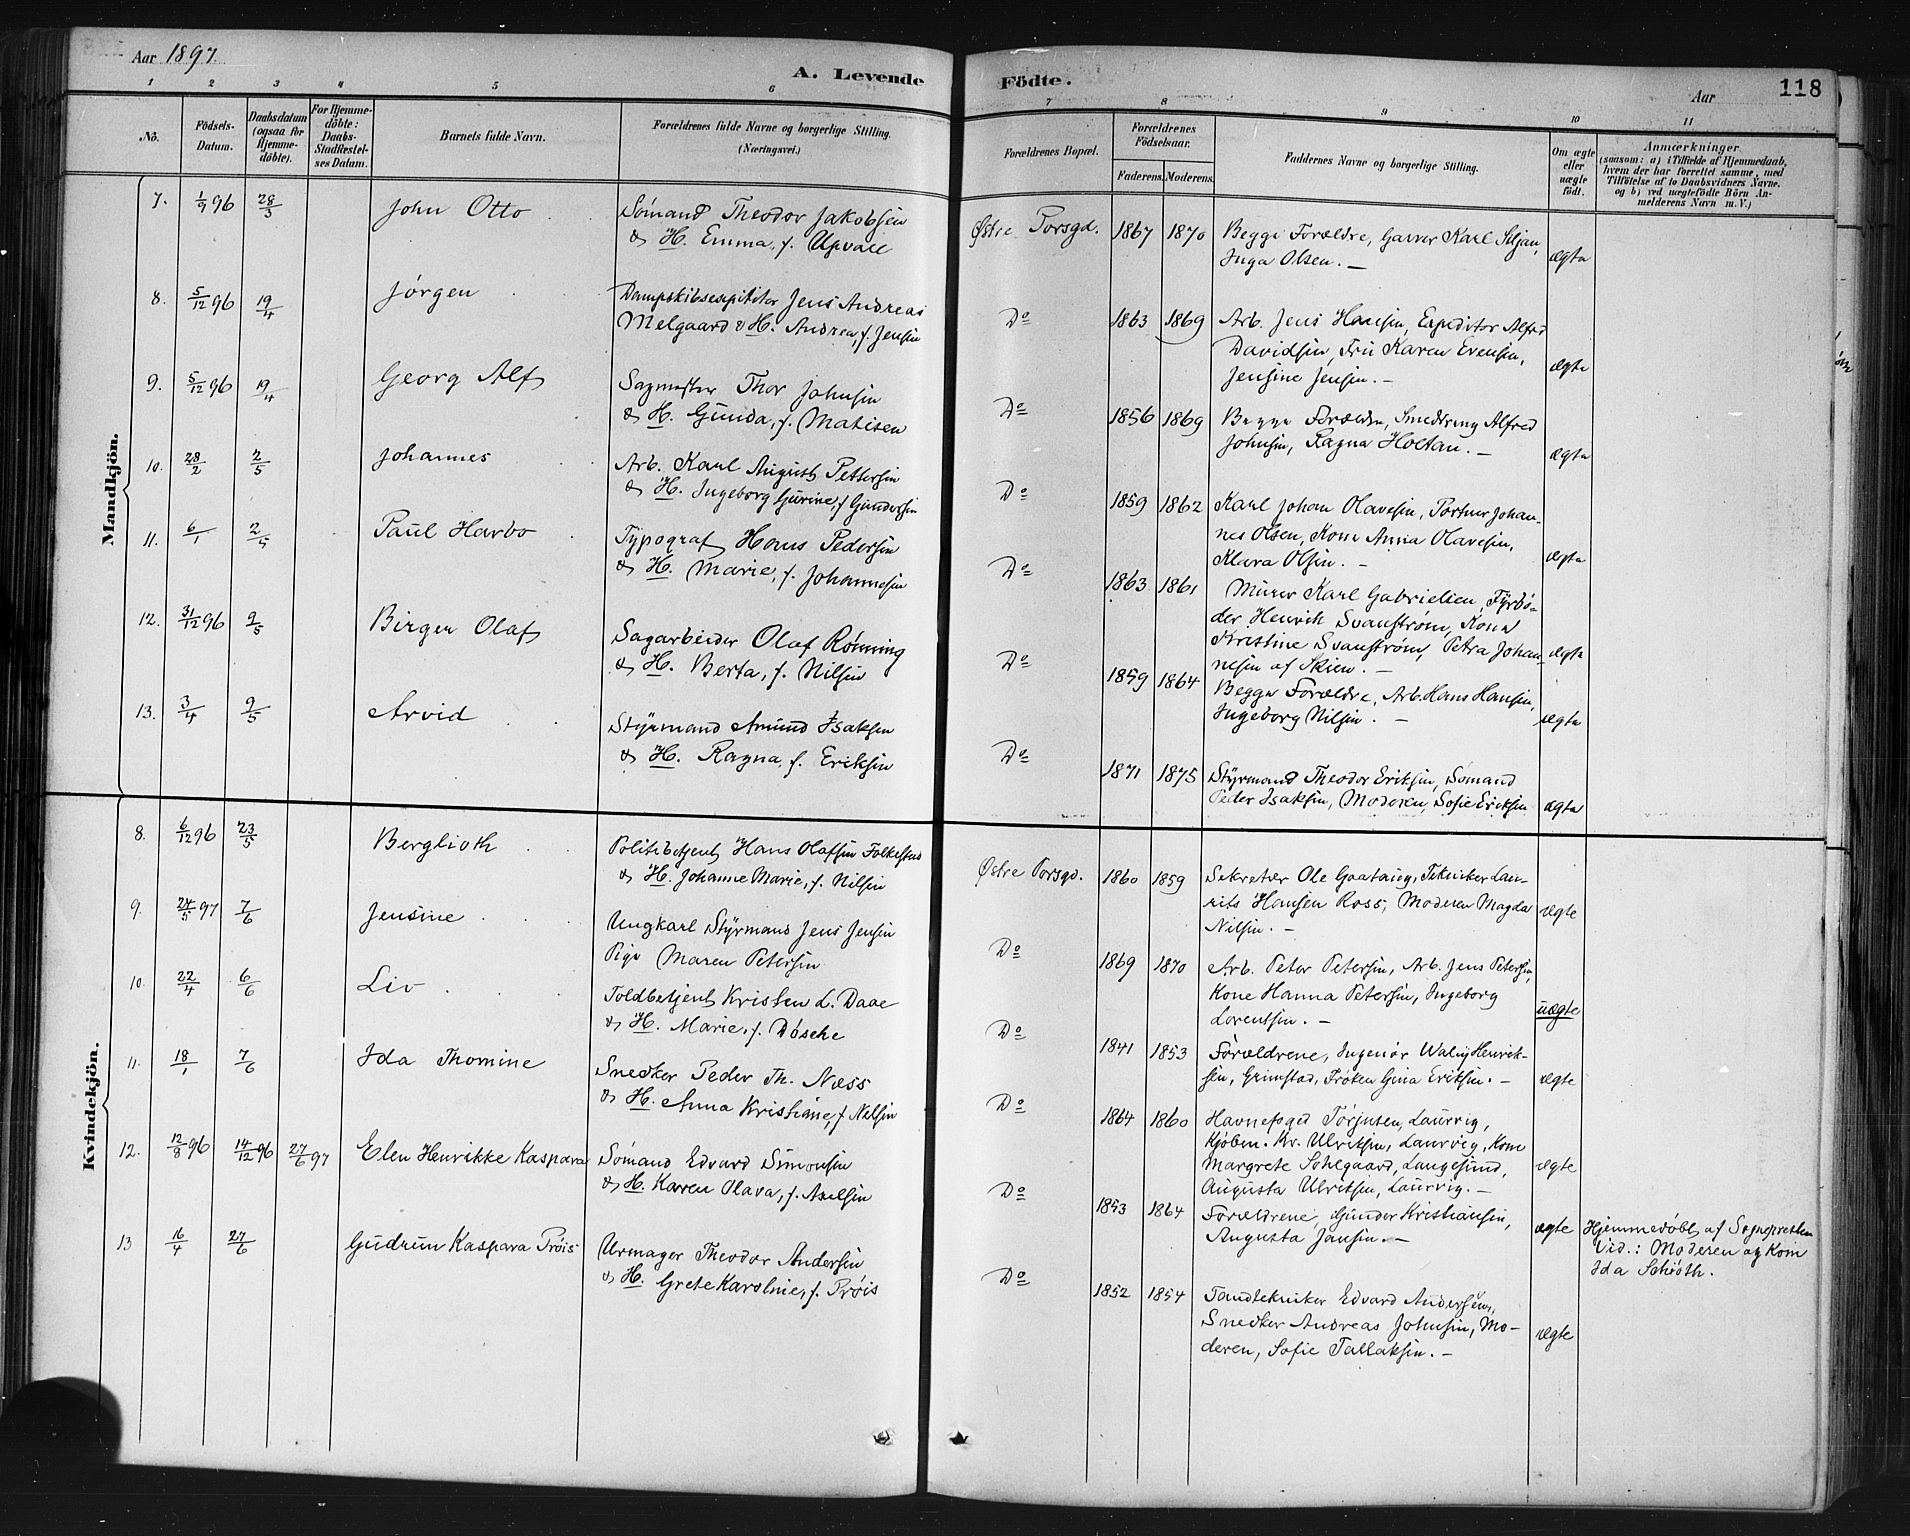 Aar 1897.
A. Levende Födte.
Aar 118
1 2 3 4 5 6 7 8 9 10 11
No.
Födsels-Datum.
Daabsdatum (ogsaa for Hjemme-döbte).
For Hjemme-döbte: Daabs-Stadfæstel-ses Datum.
Barnets fulde Navn.
Forældrenes fulde Navne og borgerlige Stilling.
(Næringsvei.)
Forældrenes Bopæl.
Forældrenes Födselsaar.
Faderens. Moderens.
Faddernes Navne og borgerlige Stilling.
Om ægte eller uægte födt.
Anmærkninger
(saasom: a) i Tilfælde af Hjemmedaab, hvem der har forrettet samme, med Tilföielse af to Daabsvidners Navne, og b) ved uægtefödte Börn Anmelderens Navn m. V.)
Mandkjön.
7. 1/9 96 28/3 John Otto
Sömand Theodor Jakobsen
& H. Emma, f. Upvall
Østre Porsgd. 1867 1870
Begge Forældre, Garver Karl Siljan,
Inga Olsen. — ægte
8. 5/12 96 19/4 Jørgen
Dampskibsexpititor Jens Andreas
Melgaard & H. Andrea, f. Jensen
Do 1863 1869
Arb. Jens Hansen, Expeditor Alfred
Davidsen, Fru Karen Evensen,
Jensine Jensen. — ægte
9. 5/12 96 19/4 Georg Alf
Sagmester Thor Johnsen
& H. Gunda, f. Matisen
Do 1856 1869
Begge Forældre, Smedsveng Alfred
Johnsen, Ragna Holtan. — ægte
10. 28/2 2/5 Johannes
Arb. Karl August Pettersen
& H. Ingeborg Gurine, f. Gundersen
Do 1859 1862
Karl Johan Olavesen, Portner Johan-
nes Olsen, Kone Anna Olavesen,
Klara Olsen. — ægte
11. 6/1 2/5 Paul Harbo
Typograf Hans Pedersen
& H. Marie, f. Johannesen
Do 1863 1861
Murer Karl Gabrielsen, Fyrbö-
der Henrik Svanstrøm, Kone
Kristine Svanstrøm, Petra Johan-
nesen af Skien. — ægte
12. 31/12 96 9/5 Birger Olaf
Sagarbeider Olaf Rønning
& H. Berta, f. Nilsen
Do 1859 1864
Begge Forældre, Arb. Hans Hansen,
Ingeborg Nilsen. — ægte
13. 3/4 9/5 Arvid
Styrmand Amund Isaksen
& H. Ragna, f. Eriksen
Do 1871 1875
Styrmand Theodor Eriksen, Sømand
Peder Isaksen, Moderen, Sofie Eriksen ægte
Kvindekjön.
8. 6/12 96 23/5 Berglioth
Politibetjent Hans Olafsen Folkestad
& H. Johanne Marie, f. Nilsen
Østre Porsgd. 1860 1859
Sekretær Ole Gaataug, Tekniker Lau-
rits Hansen Ross, Moderen Magda
Nilsen. — ægte
9. 24/5 97 7/6 Jensine
Ungkarl Styrmand Jens Jensen
Pige Maren Petersen
Do 1869 1870
Arb. Peter Petersen, Arb. Jens Petersen,
Kone Hanna Petersen, Ingeborg
Lorentsen. — uægte
10. 22/4 6/6 Liv
Toldbetjent Kristen L. Daae
& H. Marie, f. Døscke
Do 1841 1853
Forældrene, Ingeniør Henrik-
sen, Grimstad, Frøken Gina Eriksen. — ægte
11. 18/1 7/6 Ida Thomine
Snedker Peder Th. Næss
& H. Anna Kristiane, f. Nilsen
Do 1864 1860
Havnefoged Torjusen, Laurvig,
Kjöbm. Kr. Ulriksen, Laurvig, Kone
Margrete Solegaard, Langesund,
Augusta Ulriksen, Laurvig. — ægte
12. 12/8 96 14/12 96 27/6 97 Elen Henrikke Kaspara
Sömand Edvard Simonsen
& H. Karen Olava, f. Axelsen
Do 1853 1864
Forældrene, Gunder Kristiansen,
Augusta Jansen. — ægte
Hjemmedøbt af Sognepresten
Vid.: Moderen og Kone
Ida Schröth.
13 16/4 27/6 Gudrun Kaspara Prøis
Urmager Theodor Andersen
& H. Grete Karoline, f. Prøis
Do 1852 1854
Tandtekniker Edvard Andersen,
Snedker Andreas Johnsen, Mo-
deren, Sofie Tallaksen. — ægte